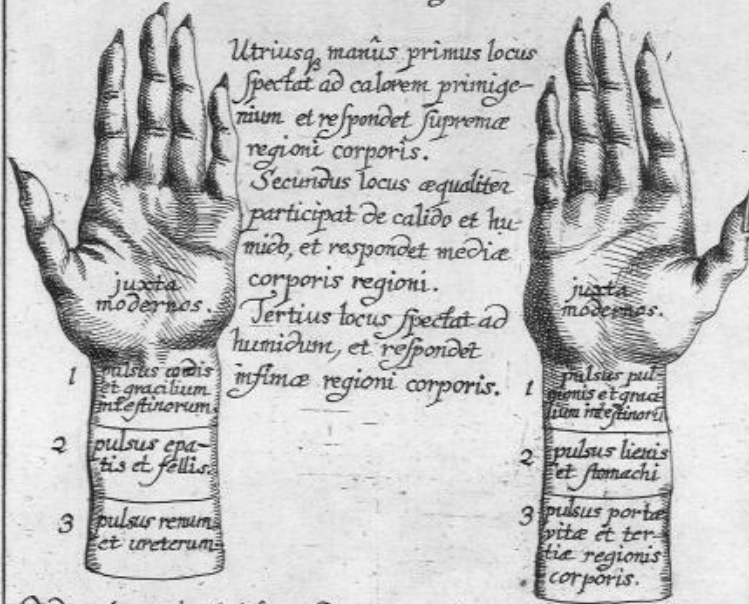 Utriusq manûs primus locus
spectat ad calorem primige-
nium et respondet supremæ
regioni corporis.
Secundus locus æqualiter
participat de calido et hu-
mido, et respondet mediæ
corporis regioni.
Tertius locus spectat ad
humidum, et respondet
infimæ regioni corporis.
juxta
modernos.
1 pulsus cordis
et gracilium
intestinorum.
2 pulsus epa-
tis et fellis.
3 pulsus renum
et ureterum
juxta
modernos.
1 pulsus pul-
monis et graci-
lium intestinorū
2 pulsus lienis
et stomachi
3 pulsus portæ
vitæ et ter-
tiæ regionis
corporis.